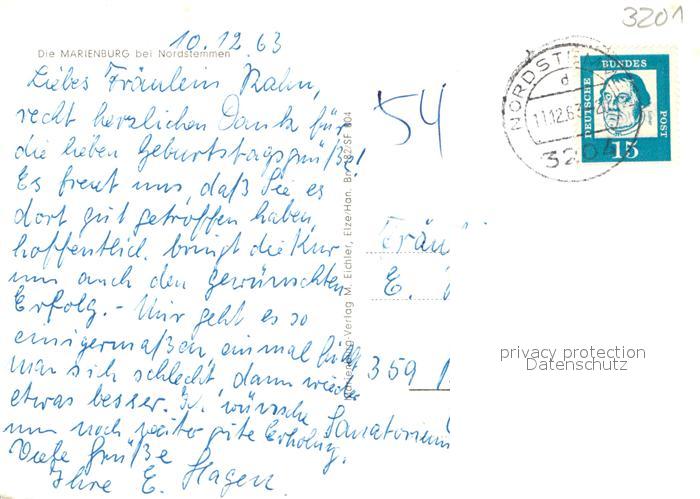 3201
10.12.63
Die MARIENBURG bei Nordstemmen
Liebes Fräulein Rahn,
recht herzlichen Dank für
die lieben Geburtstagsgrüße!
Es freut uns, daß Sie es
dort gut getroffen haben,
hoffentlich bringt die Kur
nun auch den gewünschten
Erfolg. - Mir geht es so
einigermaßen, einmal fühlt
man sich schlecht, dann wieder
etwas besser. Ich wünsche
nun noch weiter gute Erholung.
Viele Grüße
Ihre E. Hagen
54
Verlag M. Eichler, Elze/Han.
Fräu
E.
359
Sanatorium
NORDSTE
d
11.12.63
3204
DEUTSCHE BUNDESPOST
15
privacy protection
Datenschutz